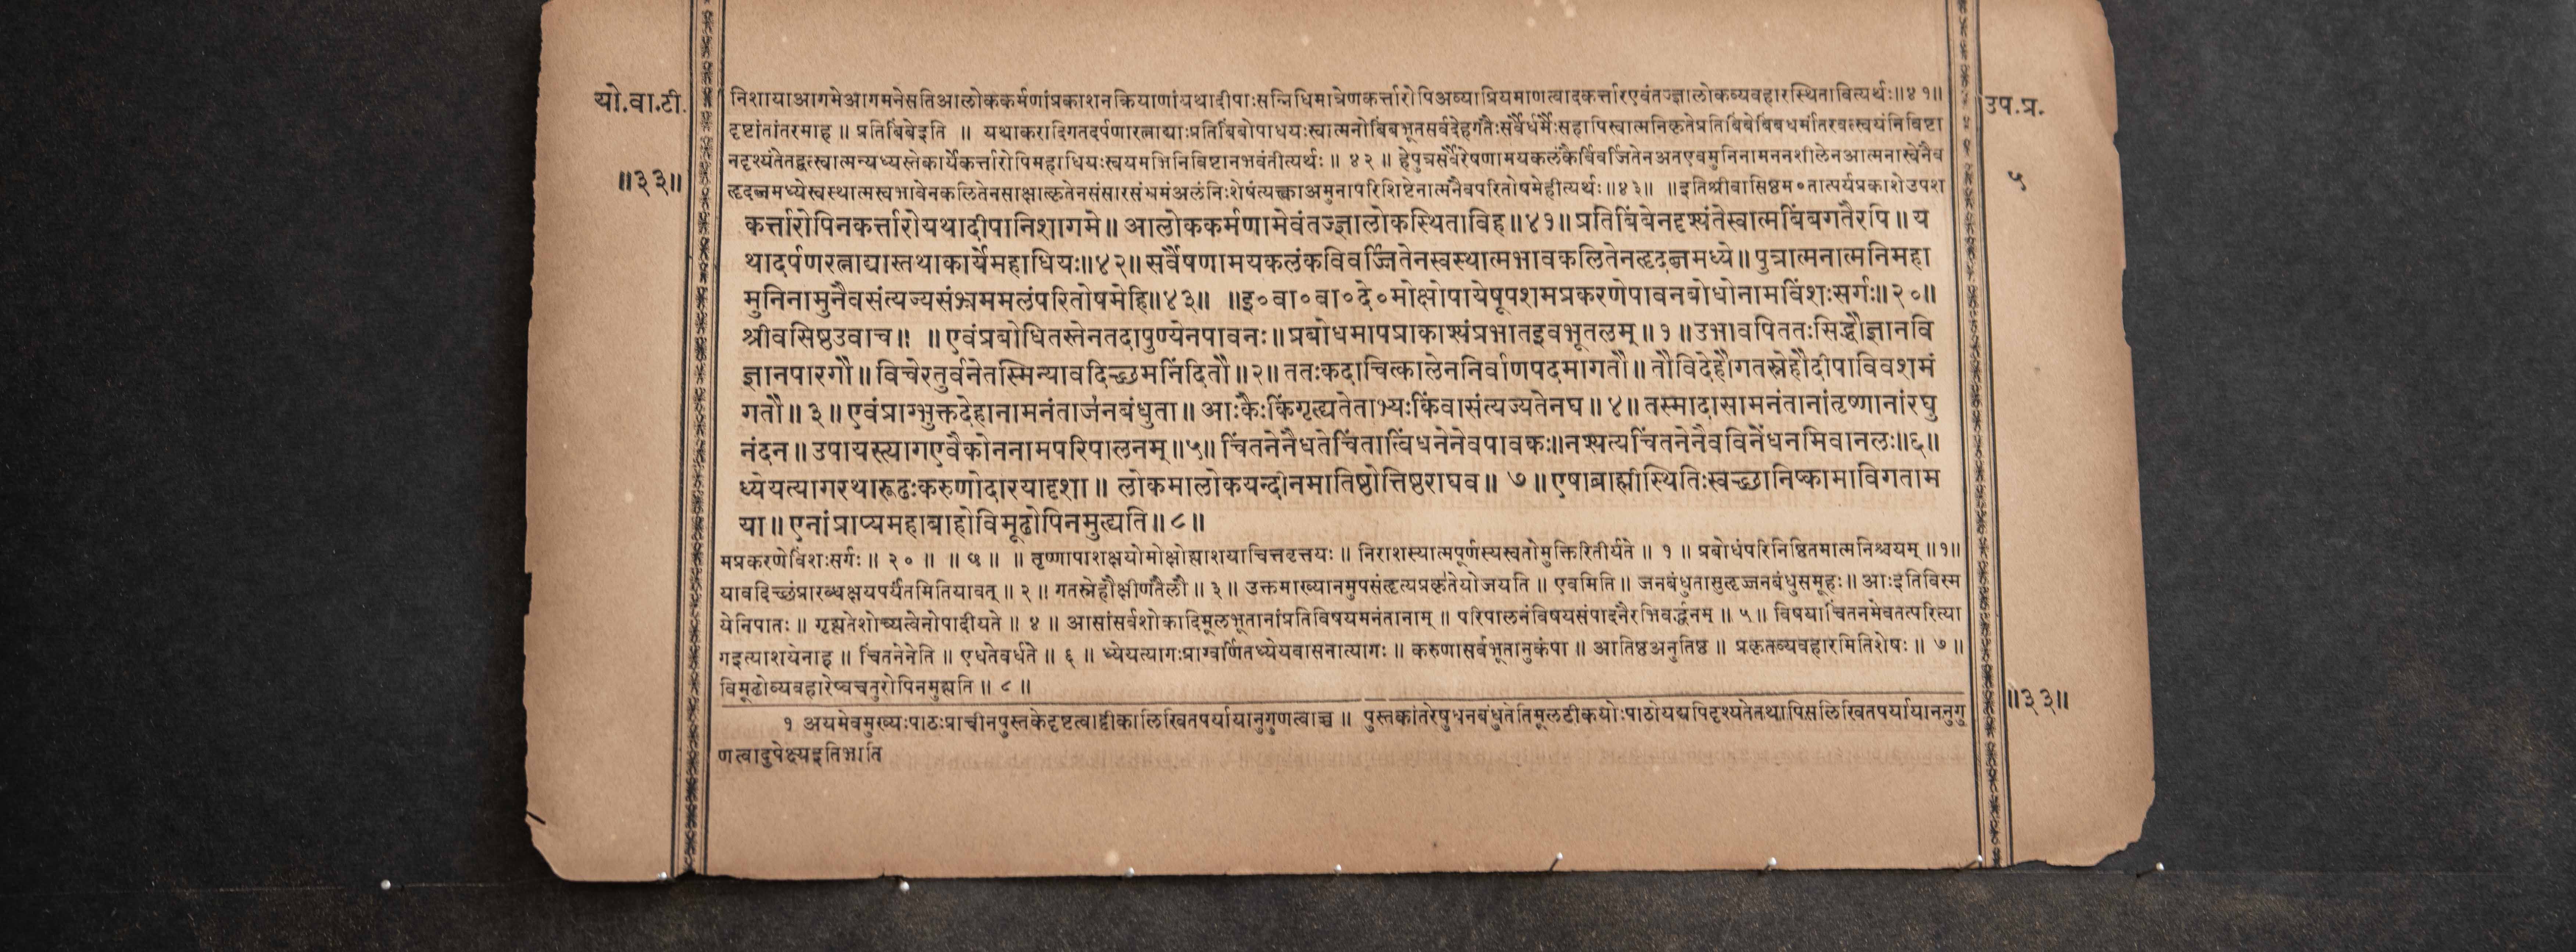 यो.वा.टी.
॥३३॥
निशायाआगमेआगमनेसतिआलोककर्मणांप्रकाशनक्रियाणांयथादीपाःसन्निधिमात्रेणकर्त्तारोपिअव्याप्रियमाणत्वादकर्त्तारएवंतज्ज्ञालोकव्यवहारस्थितावित्यर्थः॥४१॥
दृष्टांतांतरमाह ॥ प्रतिबिंबेइति ॥ यथाकरादिगतदर्पणारत्नाद्याःप्रतिबिंबोपाधयःस्वात्मनोबिंबभूतसर्वदेहगतैःसर्वैर्धर्मैःसहापिस्वात्मनिकृतेप्रतिबिंबेबिंबधर्मांतरवत्स्वयंनिविष्टा
नदृश्यंतेतद्वत्स्वात्मन्यध्यस्तेकार्येकर्त्तारोपिमहाधियःस्वयमभिनिविष्टानभवंतीत्यर्थः॥ ४२ ॥ हेपुत्रसर्वैरेषणामयकलंकैर्विवर्जितेनअतएवमुनिनामननशीलेनआत्मनास्वेनैव
हृदब्जमध्येस्वस्थात्मस्वभावेनकलितेनसाक्षात्कृतेनसंसारसंभ्रमंअलंनिःशेषंत्यक्त्वाअमुनापरिशिष्टेनात्मनैवपरितोषमेहीत्यर्थः॥४३॥ ॥इतिश्रीवासिष्ठम॰तात्पर्यप्रकाशेउपश
कर्त्तारोपिनकर्त्तारोयथादीपानिशागमे॥ आलोककर्मणामेवंतज्ज्ञालोकस्थिताविह॥४१॥ प्रतिबिंबेनदृश्यंतेस्वात्मबिंबगतैरपि॥ य
थादर्पणरत्नाद्यास्तथाकार्येमहाधियः॥४२॥ सर्वैषणामयकलंकविवर्ज्जितेनस्वस्थात्मभावकलितेनहृदब्जमध्ये॥ पुत्रात्मनात्मनिमहा
मुनिनामुनैवसंत्यज्यसंभ्रममलंपरितोषमेहि॥४३॥ ॥इ॰वा॰वा॰दे॰मोक्षोपायेषूपशमप्रकरणेपावनबोधोनामविंशःसर्गः॥२०॥
श्रीवसिष्ठउवाच॥ ॥ एवंप्रबोधितस्तेनतदापुण्येनपावनः॥ प्रबोधमापप्राकाश्यंप्रभातइवभूतलम्॥ १ ॥ उभावपिततःसिद्धौज्ञानवि
ज्ञानपारगौ॥ विचेरतुर्वनेतस्मिन्यावदिच्छमनिंदितौ॥२॥ ततःकदाचित्कालेननिर्वाणपदमागतौ॥ तौविदेहौगतस्नेहौदीपाविवशमं
गतौ॥ ३ ॥ एवंप्राग्भुक्तदेहानामनंताजनबंधुता॥ आःकैःकिंगृह्यतेताभ्यःकिंवासंत्यज्यतेनघ॥ ४॥ तस्मादासामनंतानांतृष्णानांरघु
नंदन॥ उपायस्त्यागएवैकोननामपरिपालनम्॥५॥ चिंतनेनैधतेचिंतात्विंधनेनेवपावकः॥नश्यत्यचिंतनेनैवविनेंधनमिवानलः॥६॥
ध्येयत्यागरथारूढःकरुणोदारयादृशा॥ लोकमालोकयन्दीनमातिष्ठोत्तिष्ठराघव॥ ७ ॥ एषाब्राह्मीस्थितिःस्वच्छानिष्कामाविगताम
या॥ एनांप्राप्यमहाबाहोविमूढोपिनमुह्यति॥ ८॥
मप्रकरणेविंशःसर्गः॥ २० ॥ ॥ ७५ ॥ ॥ तृष्णापाशक्षयोमोक्षोह्याशयाचित्तवृत्तयः॥ निराशस्यात्मपूर्णस्यस्वतोमुक्तिरितीर्यते॥ १ ॥ प्रबोधंपरिनिष्ठितमात्मनिश्चयम्॥१॥
यावदिच्छंप्रारब्धक्षयपर्यंतमितियावत्॥ २ ॥ गतस्नेहौक्षीणतैलौ॥ ३ ॥ उक्तमाख्यानमुपसंहृत्यप्रकृतेयोजयति॥ एवमिति॥ जनबंधुतासुहृज्जनबंधुसमूहः॥ आःइतिविस्म
येनिपातः॥ गृह्यतेशोच्यत्वेनोपादीयते॥ ४ ॥ आसांसर्वशोकादिमूलभूतानांप्रतिविषयमनंतानाम्॥ परिपालनंविषयसंपादनैरभिवर्द्धनम्॥ ५ ॥ विषयाचिंतनमेवतत्परित्या
गइत्याशयेनाह॥ चिंतनेनेति॥ एधतेवर्धते॥ ६ ॥ ध्येयत्यागःप्राग्वर्णितध्येयवासनात्यागः॥ करुणासर्वभूतानुकंपा॥ आतिष्ठअनुतिष्ठ॥ प्रकृतव्यवहारमितिशेषः॥ ७ ॥
विमूढोव्यवहारेष्वचतुरोपिनमुह्यति॥ ८ ॥
१ अयमेवमुख्यःपाठःप्राचीनपुस्तकेदृष्टत्वाट्टीकालिखितपर्यायानुगुणत्वाच्च॥ पुस्तकांतरेषुधनबंधुतेतिमूलटीकयोःपाठोयद्यपिदृश्यतेतथापिसलिखितपर्यायाननुगु
णत्वादुपेक्ष्यइतिभाति
उप.प्र.
५
॥३३॥